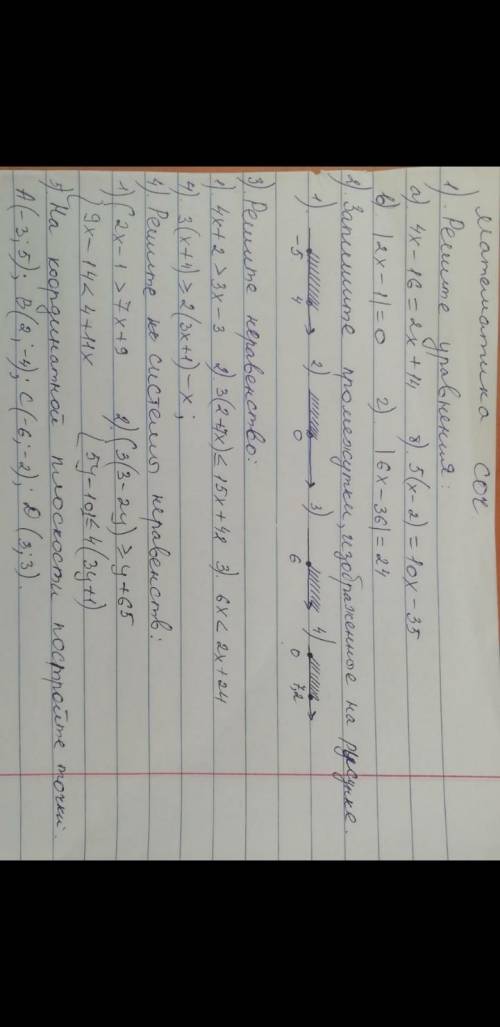 Математика СОЧ.
1). Решите уравнения:
а) 4x - 16 = 2x + 14 б). 5(x-2) = 10x - 35
в) |2x - 1| = 0 г). |6x - 36| = 24
2). Запишите промежутки, изображенные на рисунке.
1) 2) 3) 4)
-5 4 0 6 0 7,2
3) Решите неравенство:
1) 4x + 2 > 3x - 3 2) 3(2+7x) ≤ 15x + 42 3). 6x < 2x + 24
4) 3(x+4) > 2(3x+1) - x;
4) Решите системы неравенств:
1) { 2x - 1 > 7x + 9 2). { 3(3-2y) ≥ y + 65
9x - 14 < 4 + 11x 5y - 10 ≤ 4(3y+1)
5) На координатной плоскости постройте точки.
А(-3; 5); В(2; -4); С(-6; -2); D (3; 3).